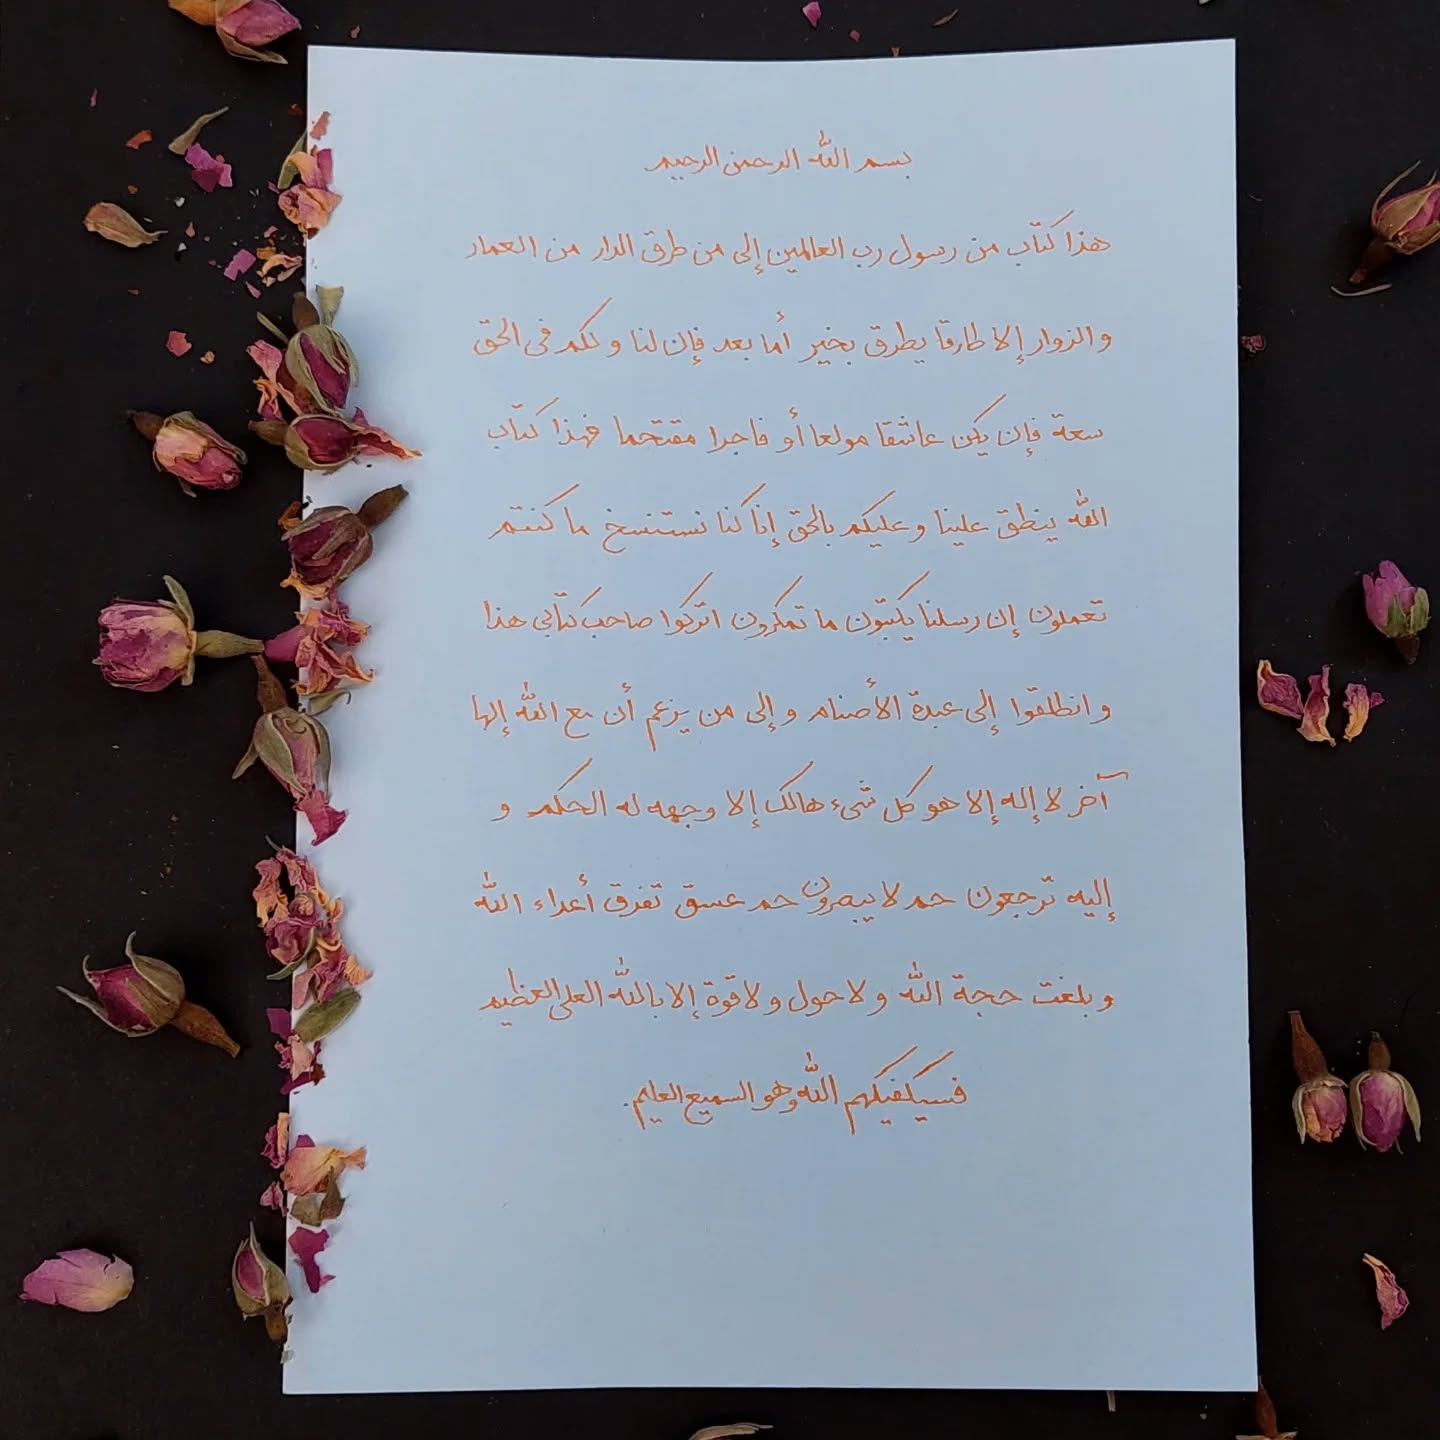 بسم الله الرحمن الرحيم
هذا كتاب من رسول رب العالمين إلى من طرق الدار من العمار
و الزوار إلا طارقا يطرق بخير أما بعد فإن لنا و لكم في الحق
سعة فإن يكن عاشقا مولعا أو فاجرا مقتحما فهذا كتاب
الله ينطق علينا و عليكم بالحق إنا كنا نستنسخ ما كنتم
تعملون إن رسلنا يكتبون ما تمكرون اتركوا صاحب كتابي هذا
و انطلقوا إلى عبدة الأصنام و إلى من يزعم أن مع الله إلها
آخر لا إله إلا هو كل شيء هالك إلا وجهه له الحكم و
إليه ترجعون حم لا يبصرون حم عسق تفرق أعداء الله
و بلغت حجة الله و لا حول و لا قوة إلا بالله العلي العظيم
فسيكفيكهم الله و هو السميع العليم.